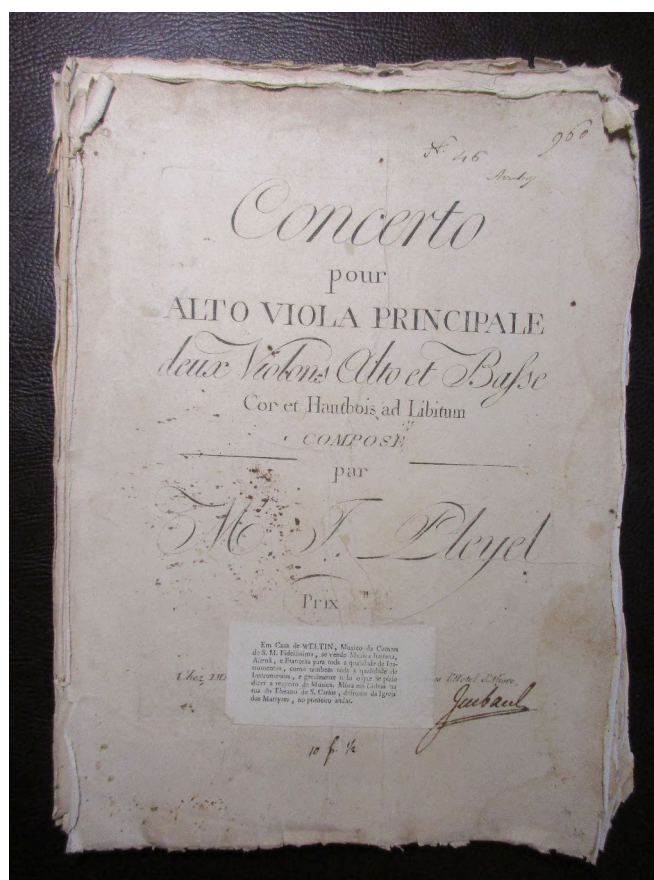 N.º 46
960
Concerto
pour
ALTO VIOLA PRINCIPALE
deux Violons Alto et Basse
Cor et Hautbois ad Libitum
COMPOSÉ
par
M. I. Pleyel
Prix
Em Casa de WELTIN, Musico da Camera
de S. M. Fidelissima, se vende Musica Italiana,
Alemã, e Franceza para toda a qualidade de Ins-
trumentos, como tambem toda a qualidade de
Instrumentos, e geralmente tudo o que se póde
dizer a respeito de Musica. Móra em Lisboa na
rua do Theatro de S. Carlos, defronte da Igreja
dos Martyres, no primeiro andar.
Chez
10 fr. ½